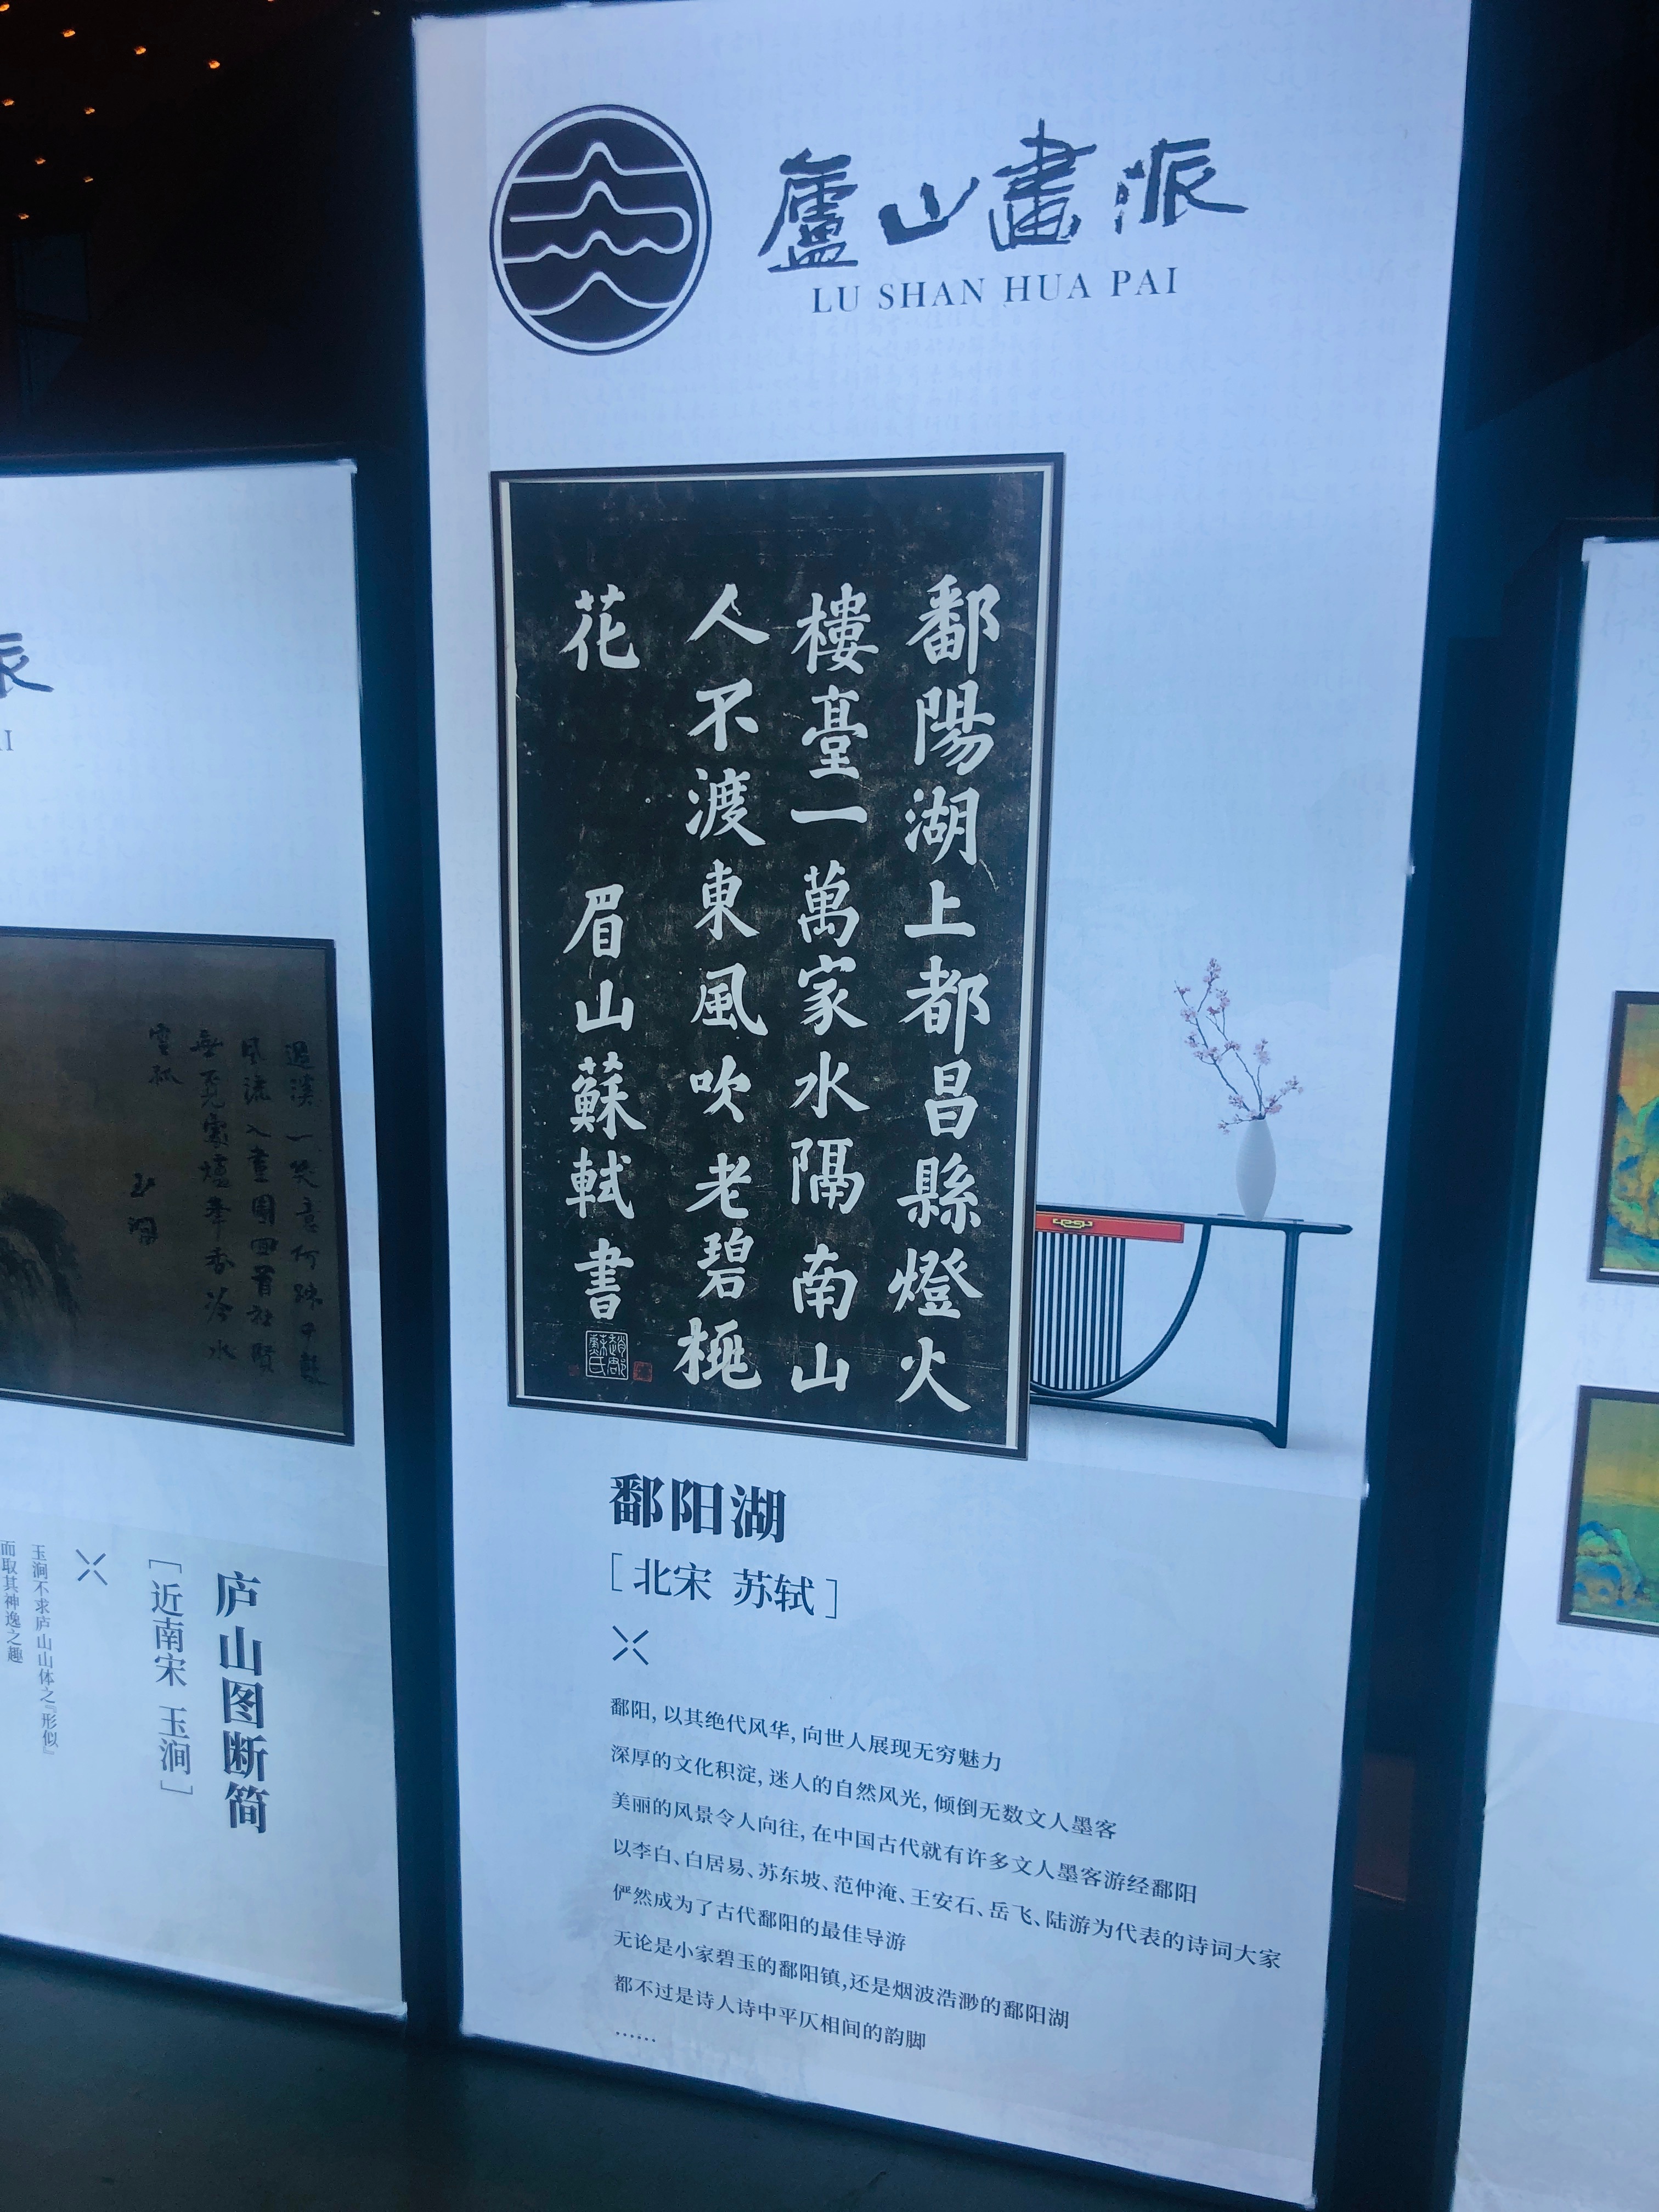 廬山畫派
LU SHAN HUA PAI
鄱陽湖上都昌縣燈火
樓臺一萬家水隔南山
人不渡東風吹老碧桃
花 眉山蘇軾書
趙郡蘇氏
鄱阳湖
[北宋 苏轼]
鄱阳,以其绝代风华,向世人展现无穷魅力
深厚的文化积淀,迷人的自然风光,倾倒无数文人墨客
美丽的风景令人向往,在中国古代就有许多文人墨客游经鄱阳
以李白、白居易、苏东坡、范仲淹、王安石、岳飞、陆游为代表的诗词大家
俨然成为了古代鄱阳的最佳导游
无论是小家碧玉的鄱阳镇,还是烟波浩渺的鄱阳湖
都不过是诗人诗中平仄相间的韵脚
……
派
AI
過溪一笑意何疎
風流入畫圖回首社賢
無覓處爐峯香冷水
雲孤
玉澗
庐山图断简
[近南宋 玉涧]
玉涧不求庐山山体之『形似』
而取其神逸之趣